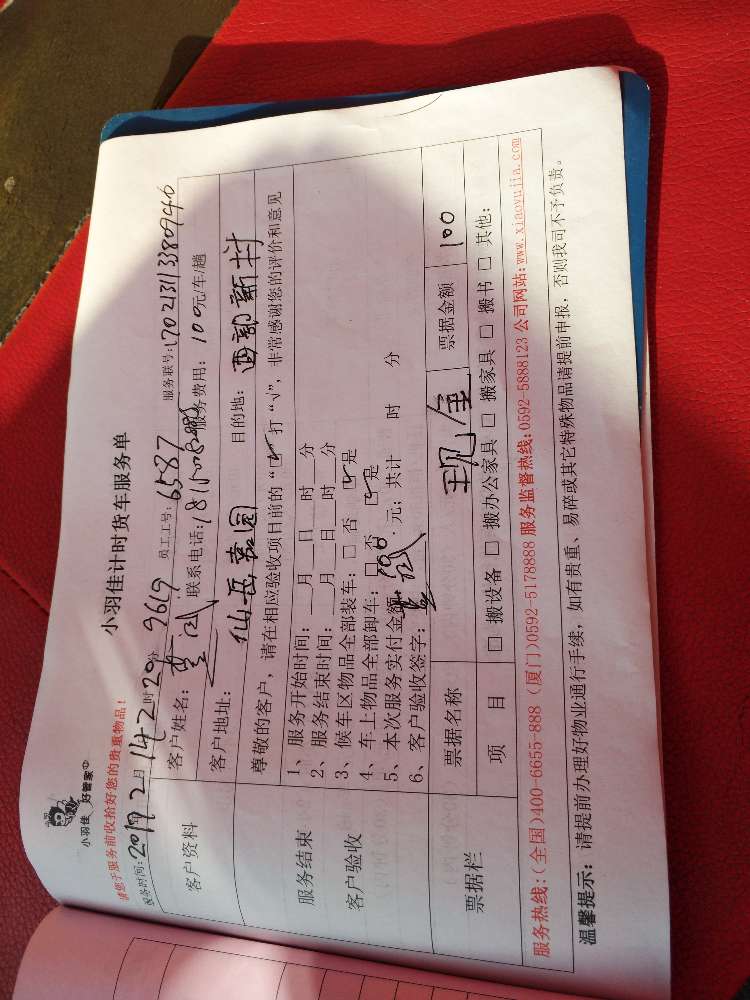 小羽佳 好管家
小羽佳计时货车服务单
请您于服务前收拾好您的贵重物品！
服务时间：2019 2月14 2时20分 9619 员工工号：6587 服务联号：
客户资料
客户姓名： 联系电话： 服务费用：100元/车/趟
客户地址：仙岳嘉园 目的地：西部新村
尊敬的客户，请在相应验收项目前的“□”打“√”，非常感谢您的评价和意见
服务结束
客户验收
1、服务开始时间：___月___日___时___分
2、服务结束时间：___月___日___时___分
3、候车区物品全部装车：□ 否 ☑是
4、车上物品全部卸车：□ 否 ☑是
5、本次服务实付金额 100 元；共计 时 分
6、客户验收签字：
票据栏
票据名称 现金 票据金额 100
项 目 □ 搬设备 □ 搬办公家具 □ 搬家具 □ 搬书 □ 其他：
服务热线：(全国)400-6655-888 (厦门)0592-5178888 服务监督热线:0592-5888123 公司网站：www.xiaoyujia.com
温馨提示：请提前办理好物业通行手续，如有贵重、易碎或其它特殊物品请提前申报，否则我司不予负责。